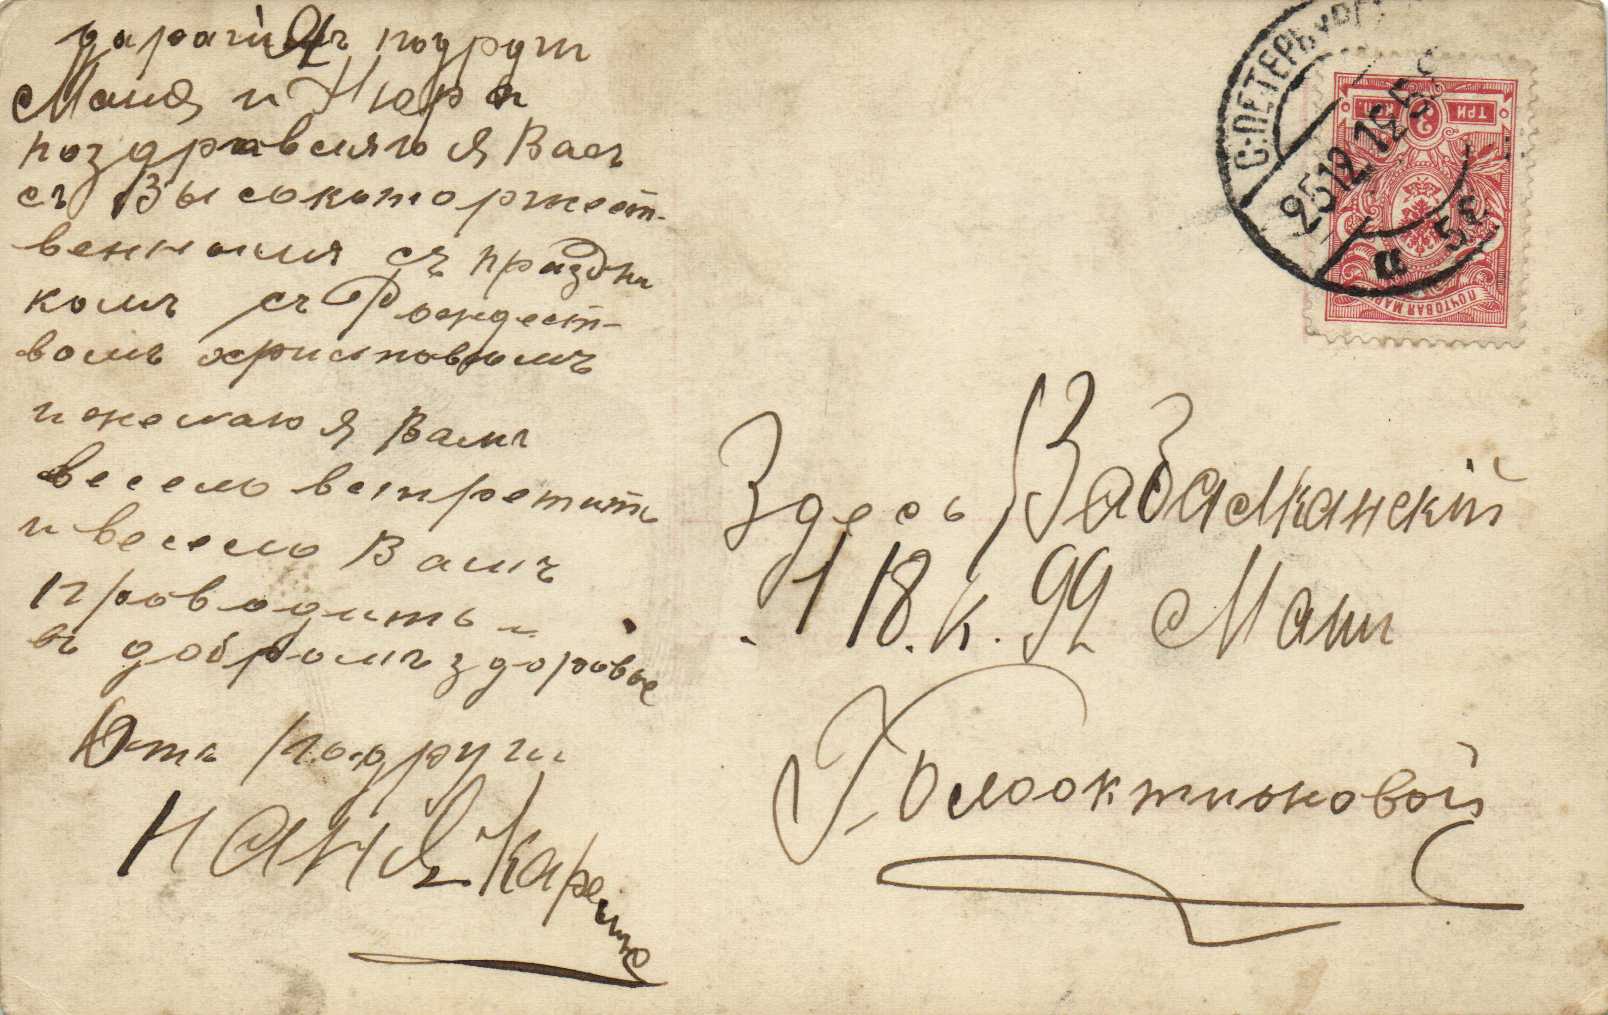 дарагимъ подруги
Маня и Нюра
поздравляю я Васъ
съ Высокоторжест-
веннымя съ праздни
комъ съ Рождест-
вомъ христовымъ
и желаю я Вамъ
весело встретить
и весело Вамъ
проводить и
въ добромъ здоровье
Отъ подруги
НАНЯ
С-ПЕТЕРБУРГ
25 12 12
ТРИ 3 КОП.
ПОЧТОВАЯ МАРКА
Здесь Забалканскій
118. к. 92 Мани